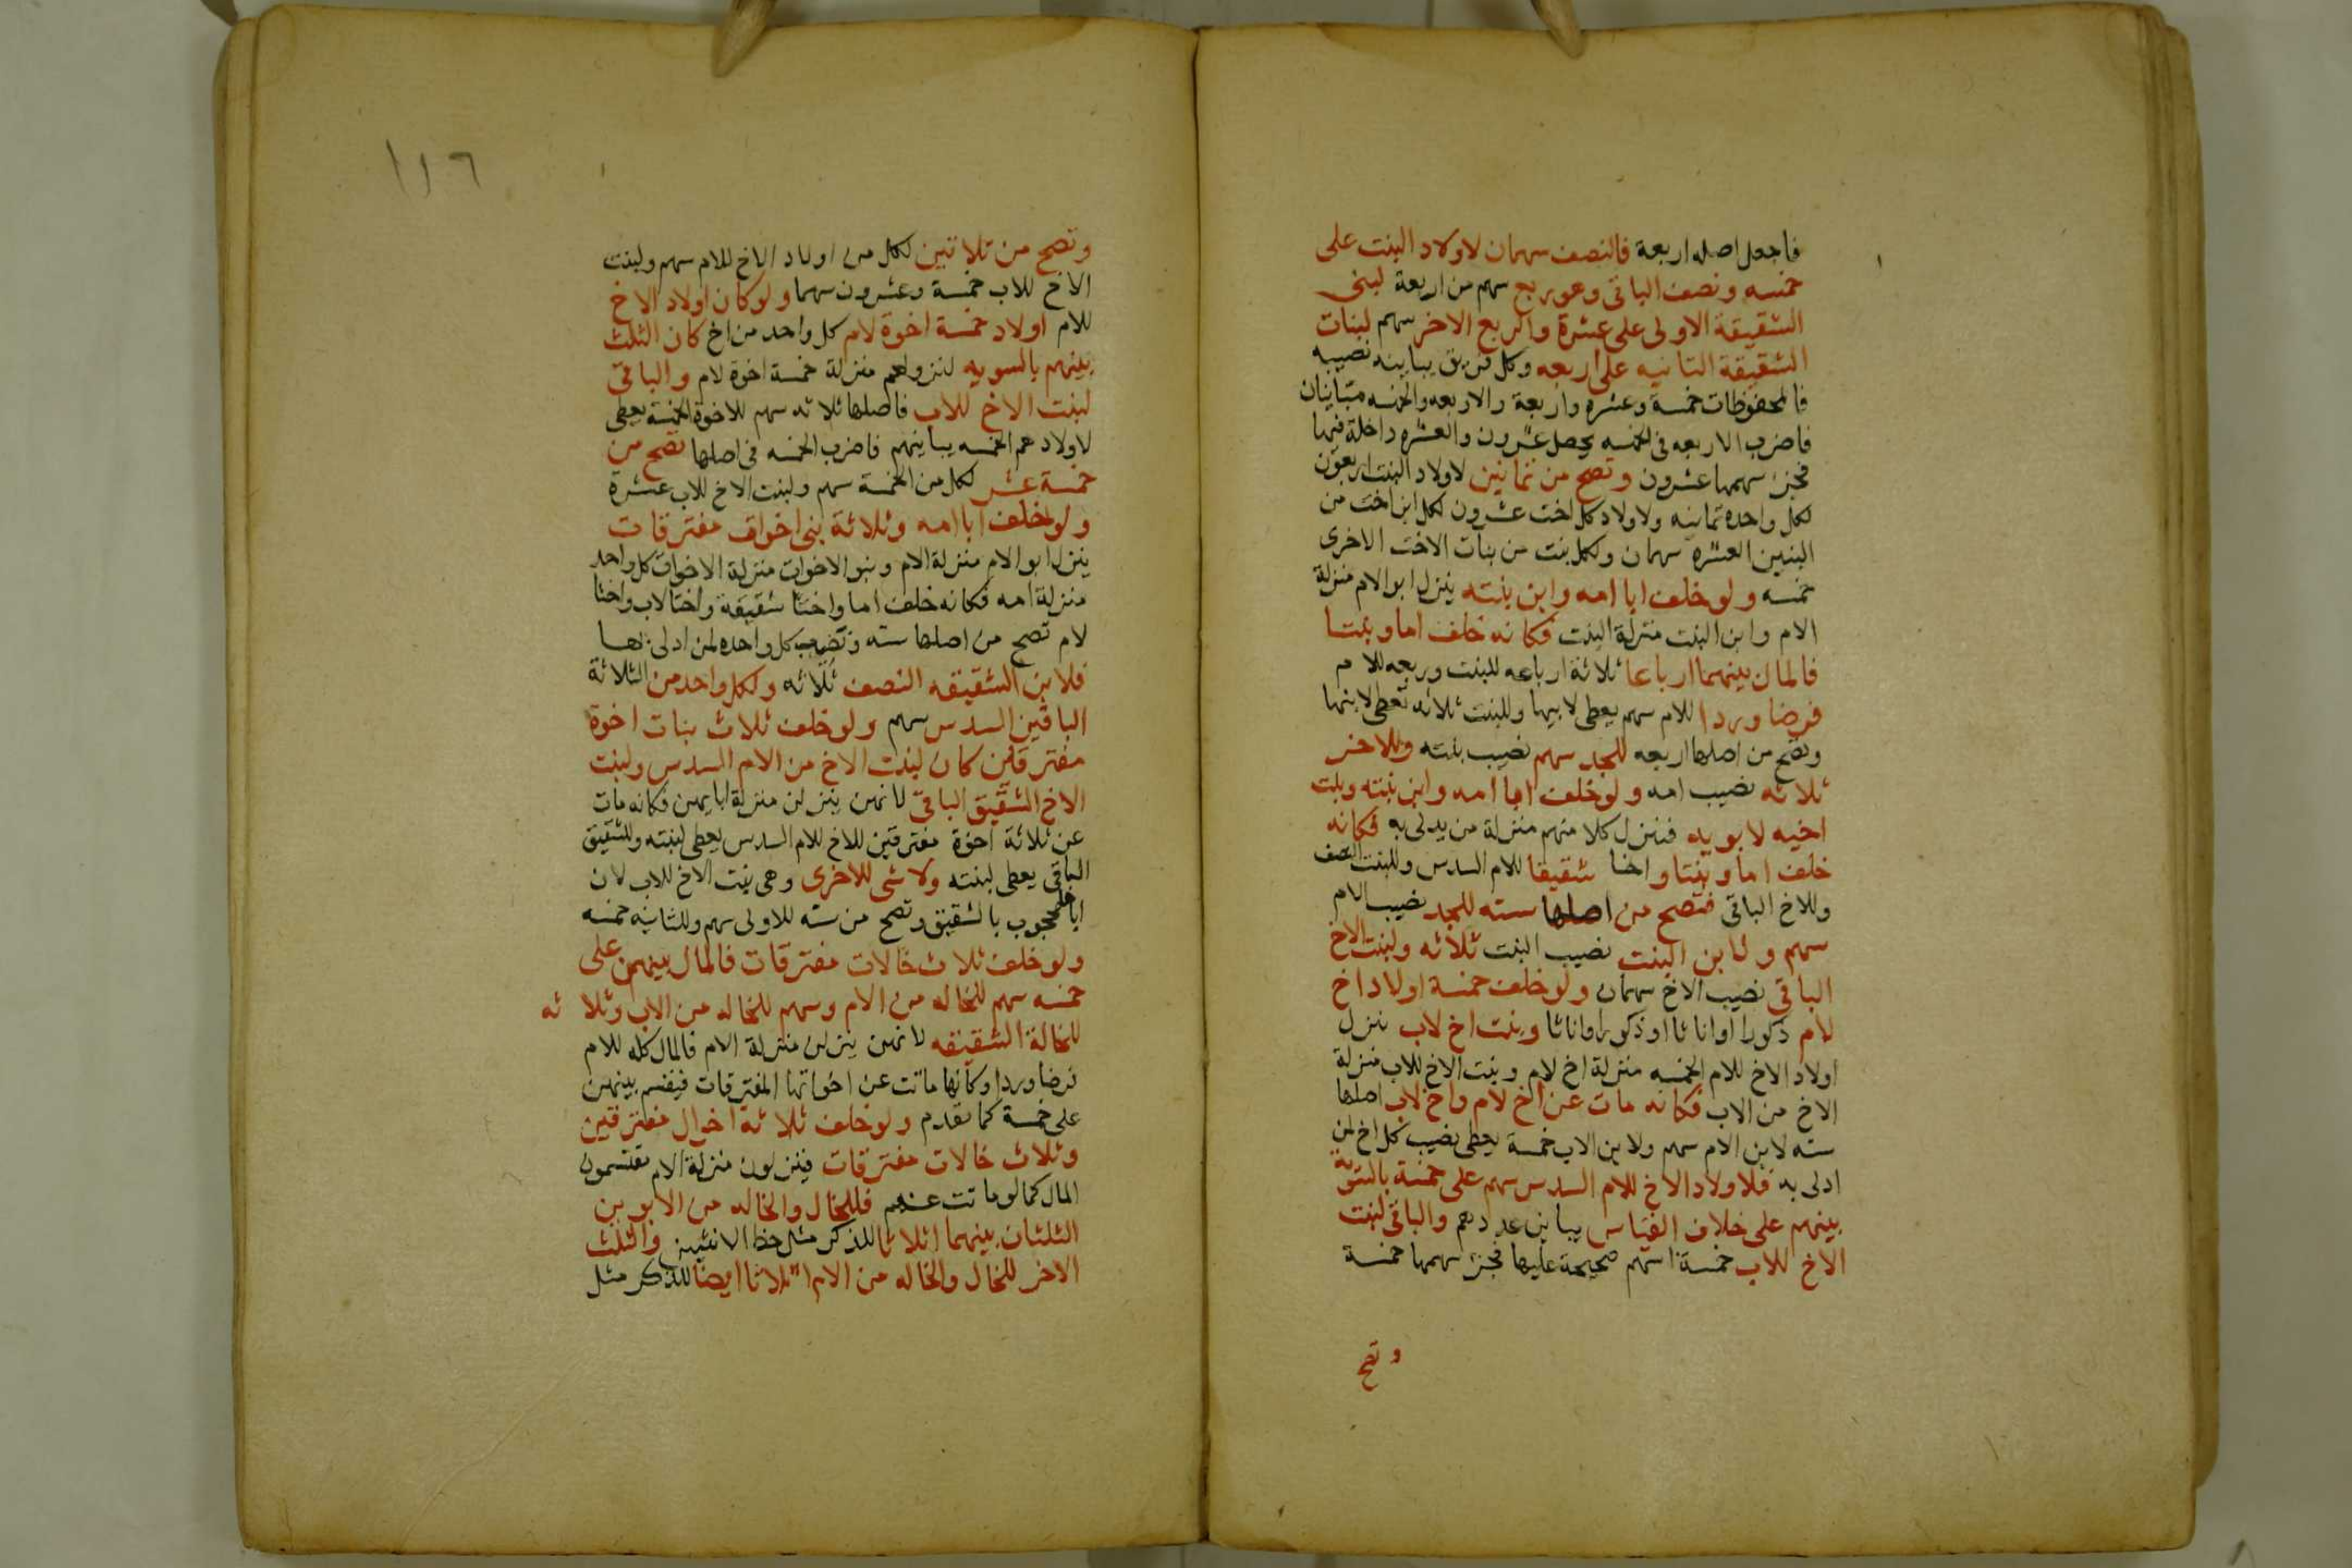 فاجعل اصله اربعة فالنصف سهمان لاولاد البنت على
خمسه ونصف الباقى وهو ربع سهم من اربعة لبنى
الشقيقة الاولى على عشرة والربع الاخر سهم لبنات
الشقيقة الثانيه على اربعه وكل فريق يباينه نصيبه
فالمحفوظات خمسة وعشره واربعة والاربعه والخمسه متباينان
فاضرب الاربعه فى الخمسه يحصل عشرون والعشره داخلة فيها
فجزء سهمها عشرون وتصح من ثمانين لاولاد البنت اربعون
لكل واحده ثمانيه ولاولاد كل اخت عشرون لكل ابن اخت من
البنين العشره سهمان ولكل بنت من بنات الاخت الاخرى
خمسه ولو خلف ابا امه وابن بنته ينزل ابو الام منزلة
الام وابن البنت منزلة البنت فكانه خلف اما وبنتا
فالمال بينهما ارباعا ثلاثة ارباعه للبنت وربعه للام
فرضا وردا للام سهم يعطى لابيها وللبنت ثلاثه تعطى لابنها
وتصح من اصلها اربعه للجد سهم نصيب بنته وللاخر
ثلاثه نصيب امه ولو خلف ابا امه وابن بنته وبنت
اخيه لابويه فننزل كلا منهم منزلة من يدلى به فكانه
خلف اما وبنتا واخا شقيقا للام السدس وللبنت النصف
وللاخ الباقى فتصح من اصلها سته للجد نصيب الام
سهم ولابن البنت نصيب البنت ثلاثه ولبنت الاخ
الباقى نصيب الاخ سهمان ولو خلف خمسة اولاد اخ
لام ذكورا او اناثا او ذكورا واناثا وبنت اخ لاب ننزل
اولاد الاخ للام الخمسه منزلة اخ لام وبنت الاخ للاب منزلة
الاخ من الاب فكانه مات عن اخ لام واخ لاب اصلها
سته لابن الام سهم ولابن الاب خمسة يعطى نصيب كل اخ لمن
ادلى به فلاولاد الاخ للام السدس سهم على خمسة بالسوية
بينهم على خلاف القياس يباين عددهم والباقى لبنت
الاخ للاب خمسة اسهم صحيحة عليها فجزء سهمها خمسة
وتصح
١١٦
وتصح من ثلاثين لكل من اولاد الاخ للام سهم ولبنت
الاخ للاب خمسة وعشرون سهما ولو كان اولاد الاخ
للام اولاد خمسة اخوة لام كل واحد من اخ كان الثلث
بينهم بالسويه لنزولهم منزلة خمسة اخوة لام والباقى
لبنت الاخ للاب فاصلها ثلاثه سهم للاخوة الخمسة يعطى
لاولادهم الخمسه يباينهم فاضرب الخمسه فى اصلها تصح من
خمسة عشر لكل من الخمسة سهم ولبنت الاخ للاب عشرة
ولو خلف ابا امه وثلاثة بنى اخوات مفترقات
ينزل ابو الام منزلة الام وبنو الاخوات منزلة الاخوات كل واحد
منزلة امه فكانه خلف اما واختا شقيقة واختا لاب واختا
لام تصح من اصلها سته ونصيب كل واحده لمن ادلى بها
فلابن الشقيقه النصف ثلاثه ولكل واحد من الثلاثة
الباقين السدس سهم ولو خلف ثلاث بنات اخوة
مفترقين كان لبنت الاخ من الام السدس ولبنت
الاخ الشقيق الباقى لانهن ينزلن منزلة ابايهن فكانه مات
عن ثلاثة اخوة مفترقين للاخ للام السدس يعطى لبنته وللشقيق
الباقى يعطى لبنته ولا شى للاخرى وهى بنت الاخ للاب لان
اباها محجوب بالشقيق وتصح من سته للاولى سهم وللثانيه خمسه
ولو خلف ثلاث خالات مفترقات فالمال بينهن على
خمسه سهم للخاله من الام وسهم للخاله من الاب وثلا ثه
للخالة الشقيقه لانهن ينزلن منزلة الام فالمال كله للام
فرضا وردا وكانها ماتت عن اخواتها المفترقات فيقسم بينهن
على خمسة كما تقدم ولو خلف ثلاثة اخوال مفترقين
وثلاث خالات مفترقات فينزلون منزلة الام يقتسمون
المال كما لو ماتت عنهم فللخال والخاله من الابوين
الثلثان بينهما اثلاثا للذكر مثل حظ الانثيين والثلث
الاخر للخال والخاله من الام اثلاثا ايضا للذكر مثل